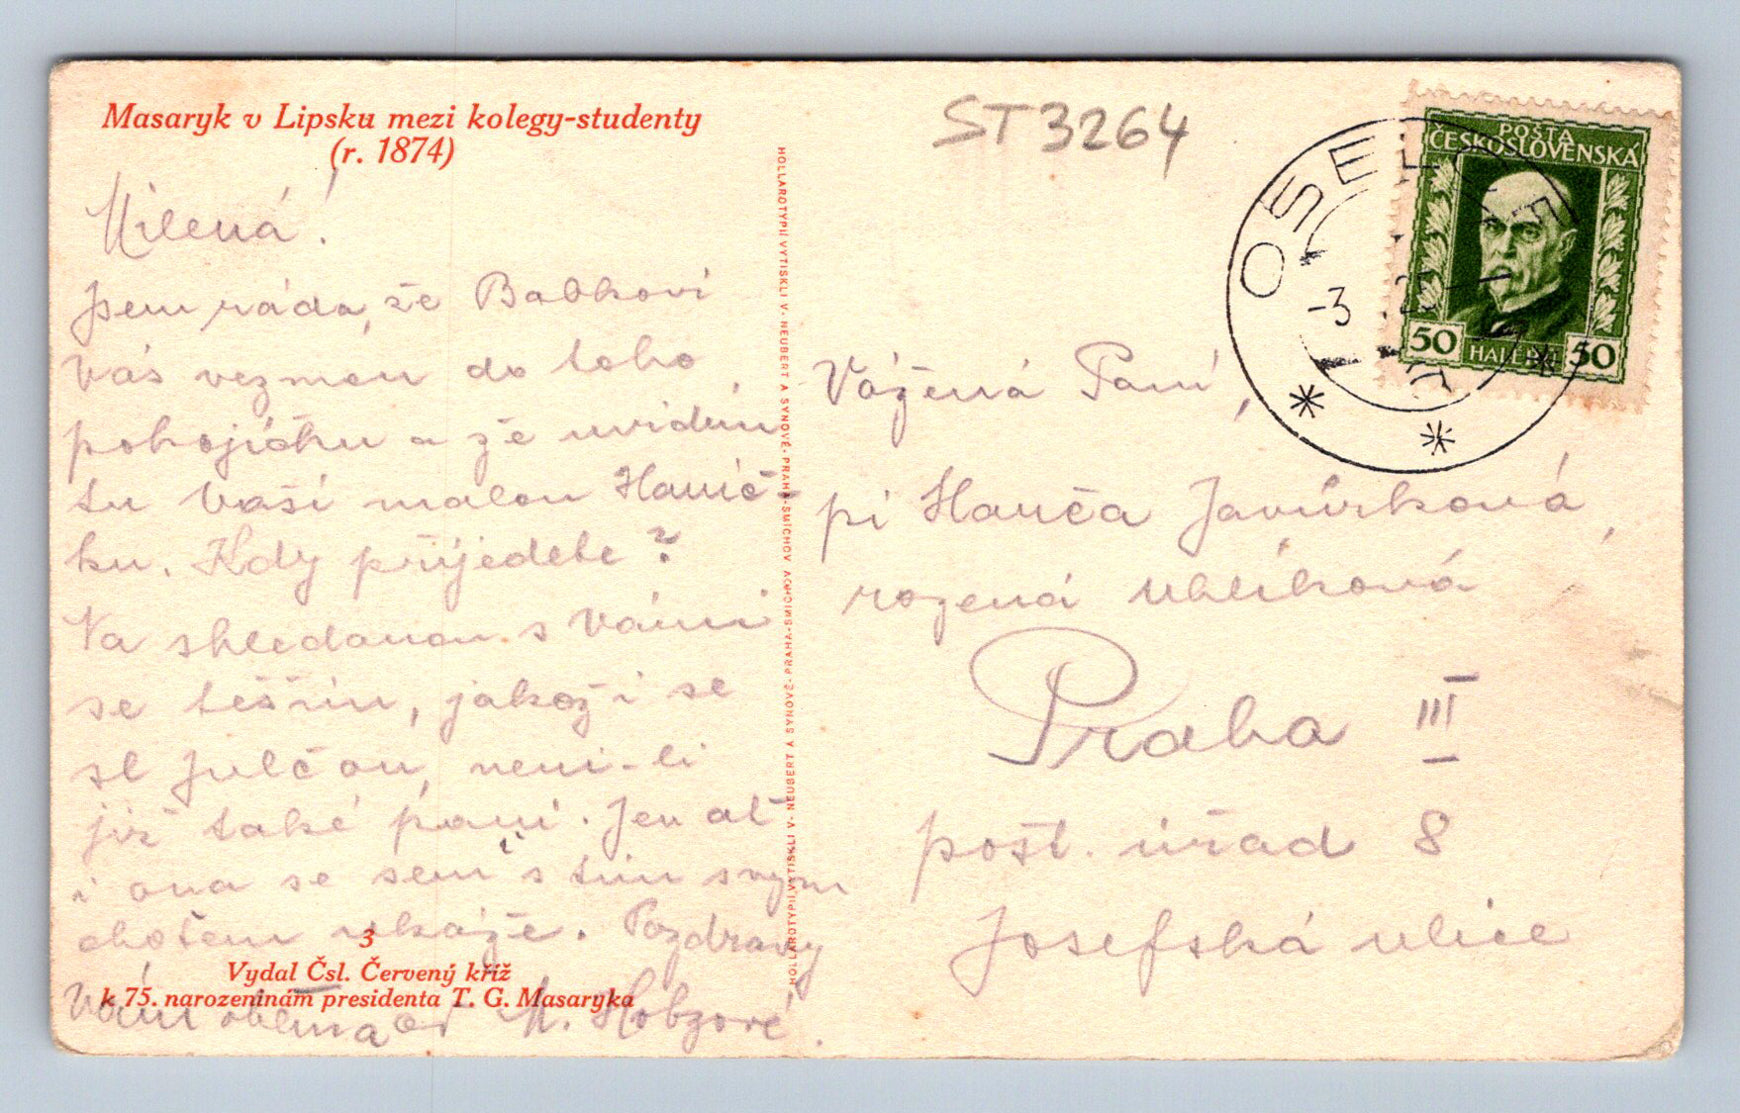 Masaryk v Lipsku mezi kolegy-studenty
(r. 1874)
Milená!
Jsem ráda, že Babkovi
Vás vezmou do toho
pohojíčku a že uvidím
tu Vaší malou Hanič-
ku. Kdy přijedete?
Na shledanou s Vámi
se těším, jakož i se
sl Julčou, není-li
již také paní. Jen ať
i ona se sem s tím svým
chotěm ukáže. Pozdravy
Vám oběma od M. Hobzové.
3
Vydal Čsl. Červený kříž
k 75. narozeninám presidenta T. G. Masaryka
HOLLAROTYPII VYTISKLI V. NEUBERT A SYNOVÉ - PRAHA-SMÍCHOV
HOLLAROTYPII VYTISKLI V. NEUBERT A SYNOVÉ - PRAHA-SMÍCHOV
ST3264
POŠTA
ČESKOSLOVENSKÁ
50 HALÉŘŮ 50
OSEL
-3
Vážená Paní,
pí Hanča Javůrková,
rozená Uhlíková
Praha III
pošt. úřad 8
Josefská ulice